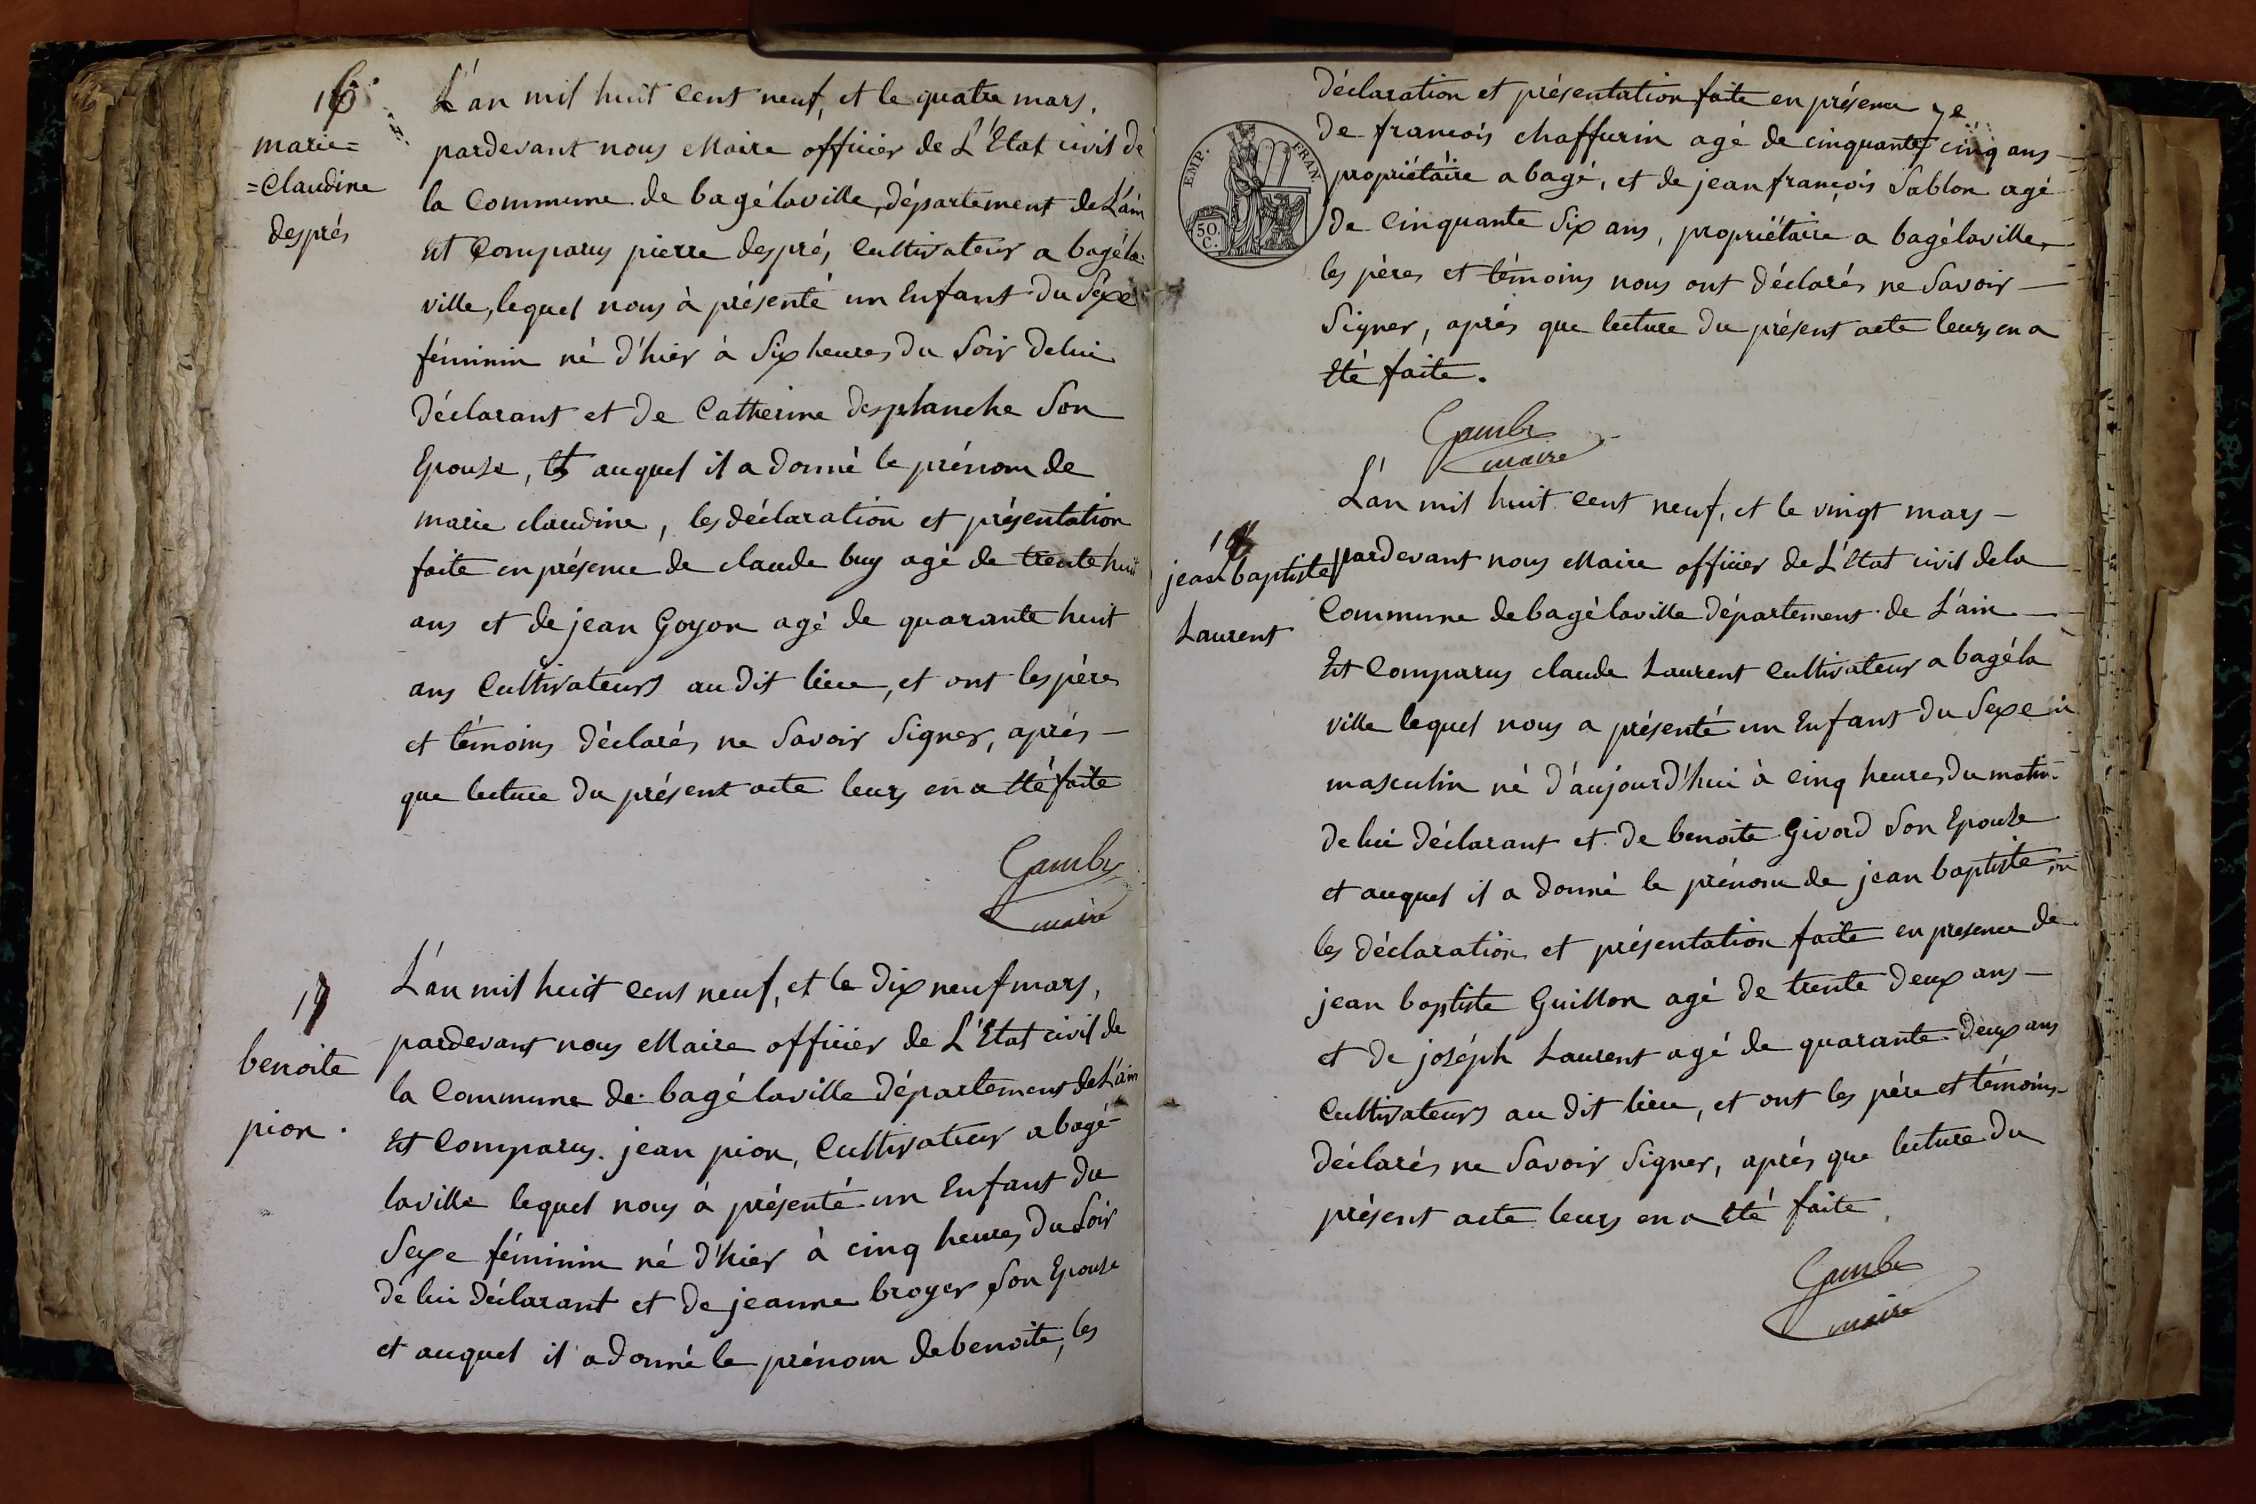 16
marie=
=Claudine
després
L'an mil huit cent neuf, et le quatre mars,
pardevant nous Maire officier de L'Etat civil de
la Commune de bagélaville, département de L'ain
Est Comparus pierre després, Cultivateur a bagéla-
ville, lequel nous à présenté un Enfant du Séxe
féminin né d'hier à Six heures du Soir de lui
déclarant et de Catherine desplanche Son
Epouse, auquel il a donné le prénom de
marie claudine, les déclaration et présentation
faite en présence de claude buy agé de trente huit
ans et de jean Goyon agé de quarante huit
ans Cultivateurs au dit lieu, et ont les père
et témoins déclarés ne Savoir Signer, après
que lecture du présent acte leurs en a Eté faite
Gambr
maire
17
benoite
pion.
L'an mil huit cent neuf, et le dix neuf mars,
pardevant nous Maire officier de L'Etat civil de
la Commune de bagélaville département de L'ain
Est Comparus jean pion, Cultivateur a bagé-
laville lequel nous à présenté un Enfant du
Sexe féminin né d'hier à cinq heures du Soir
de lui déclarant et de jeanne broyer Son Epouse
et auquel il a donné le prénom de benoite, les
déclaration et présentation faite en présence 7e
de francois chaffurin agé de cinquante cinq ans
propriétaire a bagé, et de jean françois Sablon agé
de Cinquante Six ans, propriétaire a bagélaville,
les pères et témoins nous ont déclarés ne Savoir
Signer, après que lecture du présent acte leurs en a
Eté faite.
EMP. FRAN.
50.
C.
Gambr
maire
18
jean baptiste
Laurent
L'an mil huit cent neuf, et le vingt mars
pardevant nous Maire officier de L'Etat civil de la
Commune de bagélaville département de L'ain
Est Comparus claude Laurent Cultivateur a bagéla
ville lequel nous a présenté un Enfant du Sexe
masculin né d'aujourd'hui à cinq heures du matin
de lui déclarant et de benoite Givord Son Epouse
et auquel il a donné le prénom de jean baptiste,
les déclaration et présentation faite en presence de
jean baptiste Guillon agé de trente deux ans
et de joséph Laurent agé de quarante deux ans
Cultivateurs au dit lieu, et ont les père et témoins
déclarés ne Savoir Signer, après que lecture du
présent acte leurs en a Eté faite.
Gambr
maire